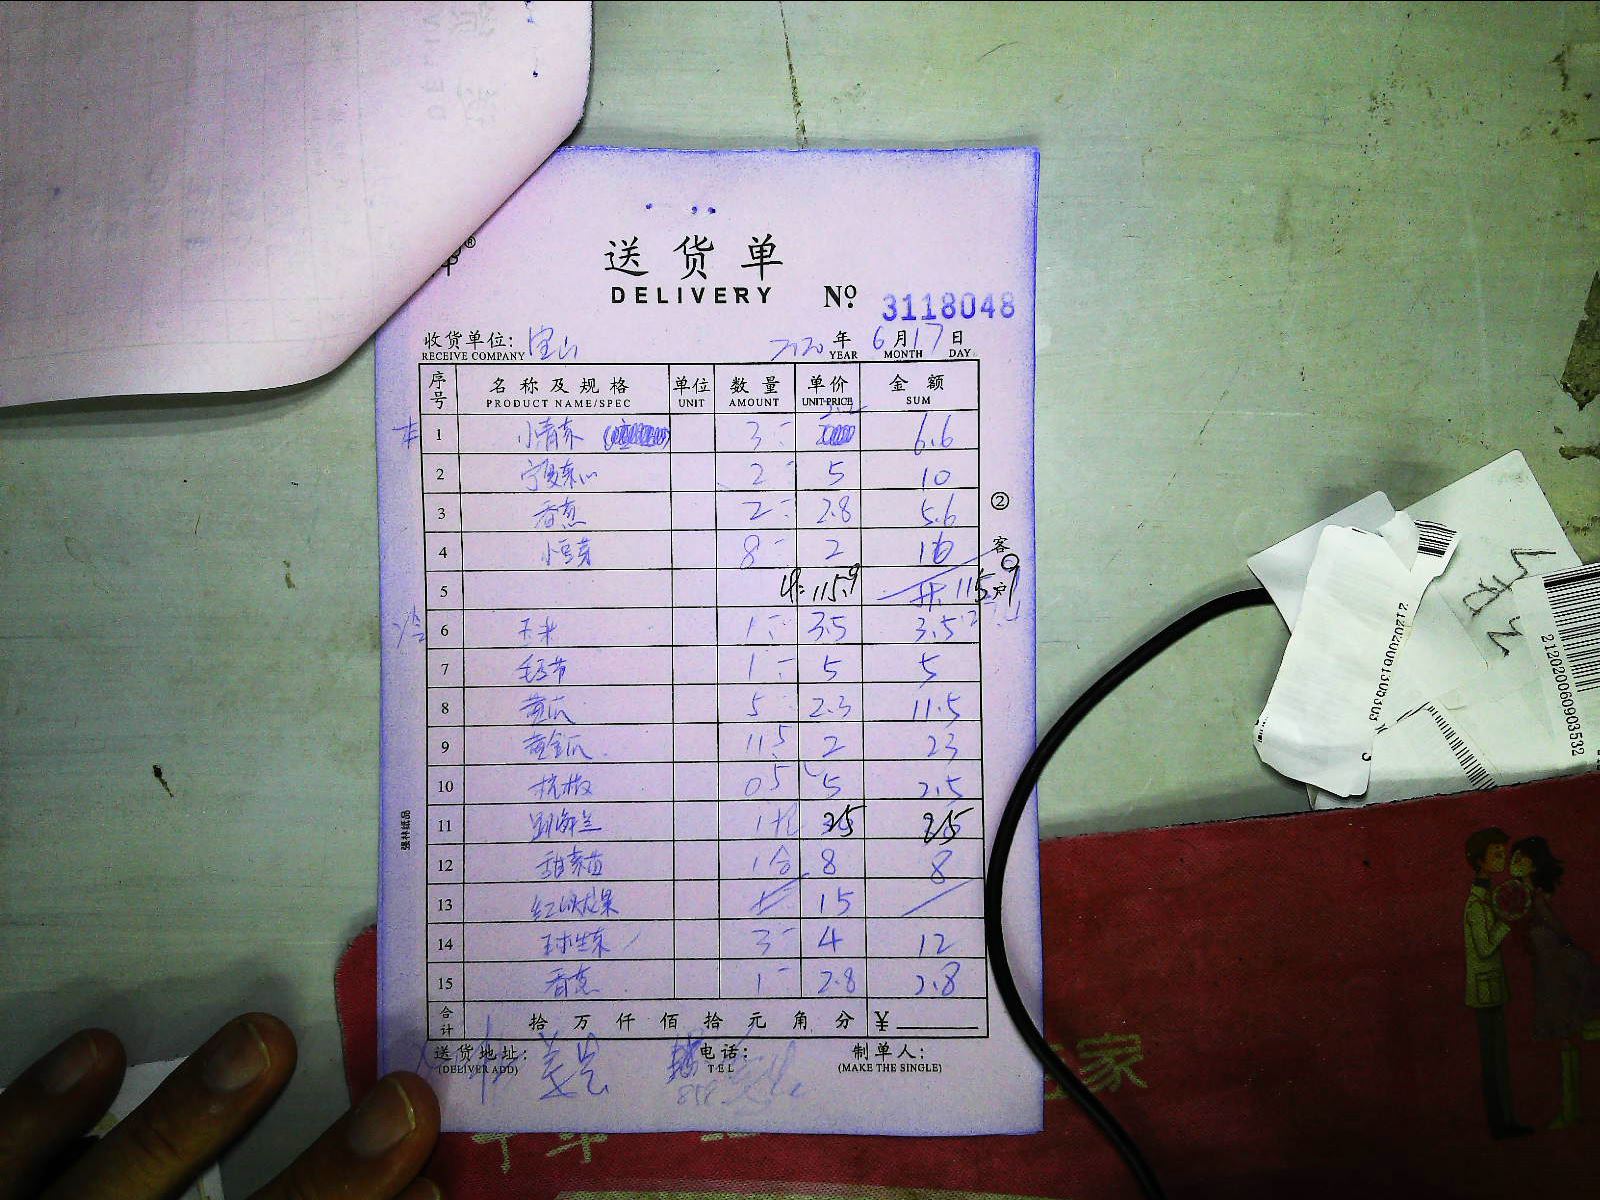 送货单
DELIVERY
No. 3118048
收货单位: 宝山 2020年 6月17日
RECEIVE COMPANY YEAR MONTH DAY
序号 名称及规格 单位 数量 单价 金额
PRODUCT NAME/SPEC UNIT AMOUNT UNIT PRICE SUM
1 小青菜 3 2.2 6.6
2 宁夏菜心 2 5 10
3 香葱 2 2.8 5.6
4 小豆芽 8 2 16
5 115.9 115.9
6 玉米 1 3.5 3.5
7 1 5 5
8 黄瓜 5 2.3 11.5
9 黄金瓜 11.5 2 23
10 杭椒 0.5 5 2.5
11 1 25 25
12 甜豆苗 1合 8 8
13 红火龙果 15
14 球生菜 3 4 12
15 香葱 1 2.8 2.8
合计 拾万仟佰拾元角分 ¥
送货地址: 电话: 制单人:
(DELIVER ADD) TEL (MAKE THE SINGLE)
②客户
强林纸品
212020060903532
家